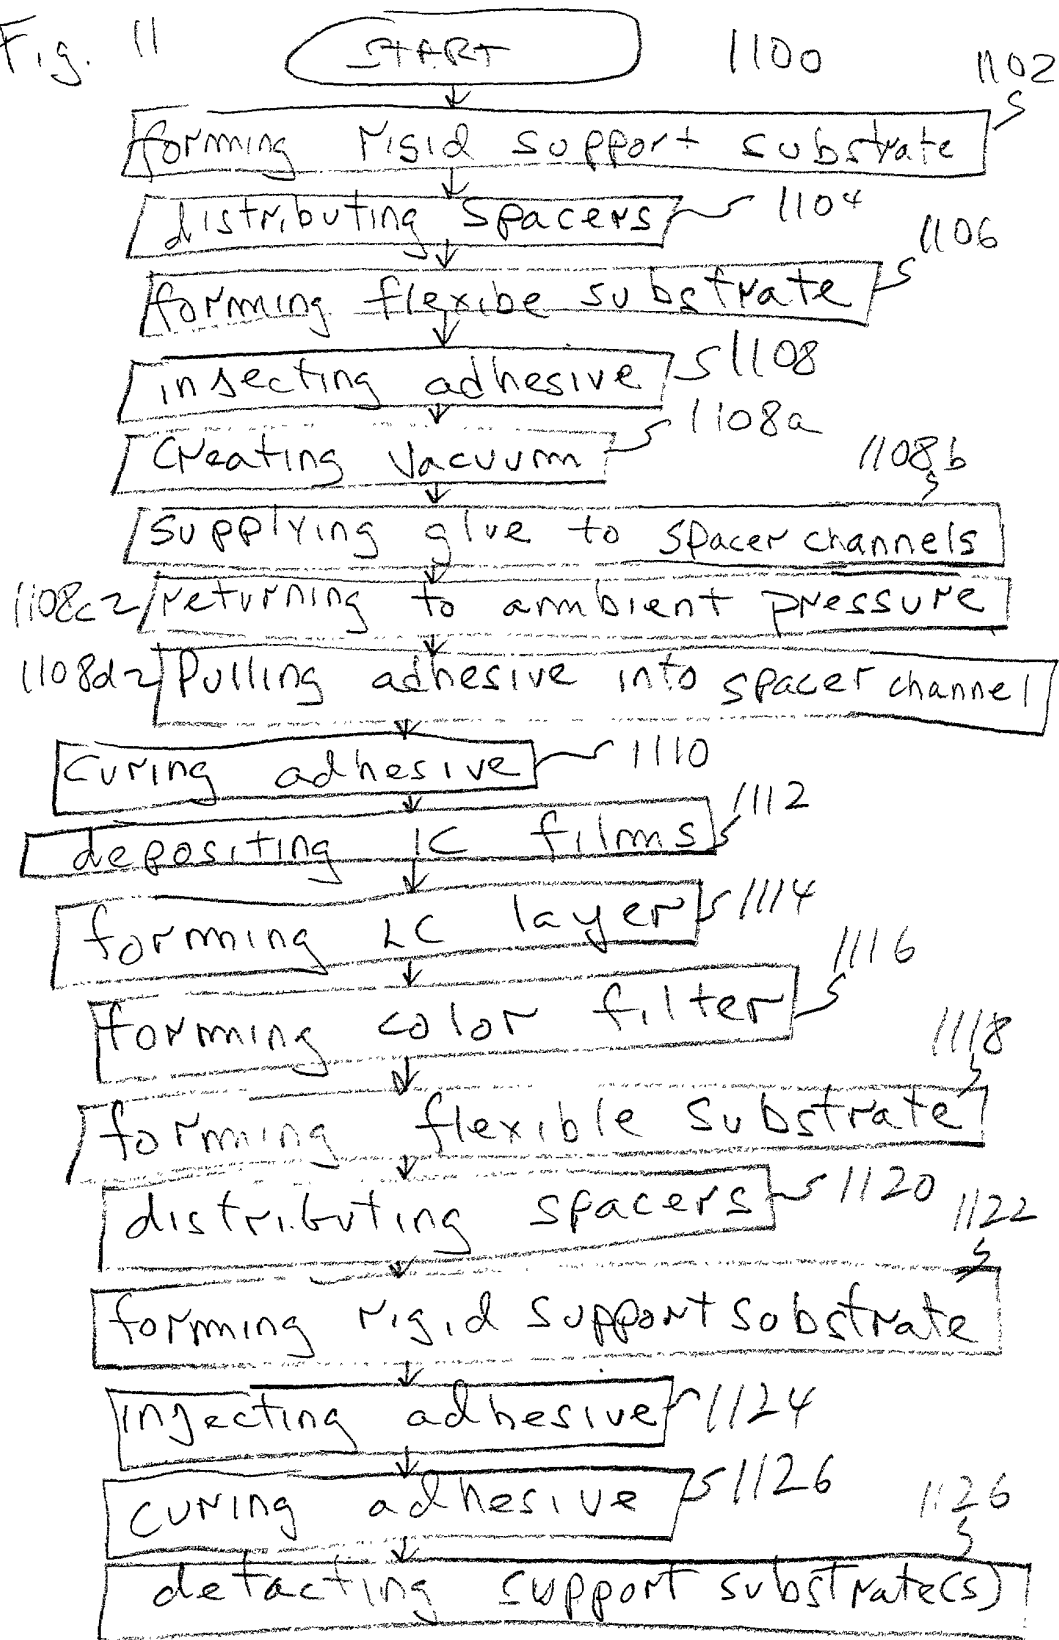 Fig. 11 START 1100 1102
forming rigid support substrate
distributing spacers 1104
1106
forming flexibe substrate
injecting adhesive 1108
creating vacuum 1108a
1108b
supplying glue to spacer channels
1108c returning to ambient pressure
1108d Pulling adhesive into spacer channel
curing adhesive 1110
depositing IC films 1112
forming LC layer 1114
1116
forming color filter
1118
forming flexible substrate
distributing spacers 1120
1122
forming rigid support substrate
injecting adhesive 1124
curing adhesive 1126
1126
detacting support substrate(s)